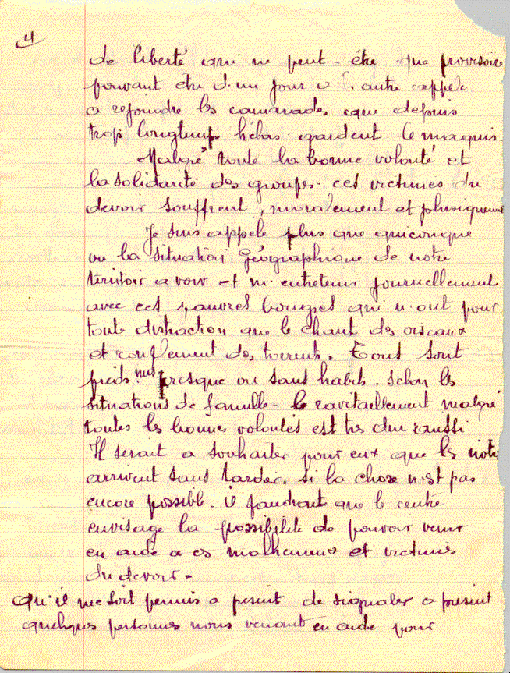 4
de liberté qui ne peut être que provisoire
pouvant être d'un jour à l'autre appelé
a rejoindre les camarades que depuis
trop longtemps hélas gardent le maquis
Malgré toute la bonne volonté et
la solidarité des groupes. ces victimes du
devoir souffrent, moralement et physiquement
Je suis appelé plus que quiconque
vu la situation géographique de notre
territoir a voir et m'entretenir journellement
avec ces pauvres bougres qui n'ont pour
toute distraction que le chant des oiseaux
et ronflement des torrents. Tous sont
pieds nus presque ou sans habits. selon les
situations de famille - le ravitaillement malgré
toutes les bonnes volontés est très dur aussi.
Il serait a souhaiter pour eux que les notre
arrivent sans tarder. si la chose n'est pas
encore possible. il faudrait que le centre
envisage la possibilité de pouvoir venir
en aide a ces malheureux et victimes
du devoir -
Qu'il me soit permis a présent de signaler a présent
quelques personnes nous venant en aide pour